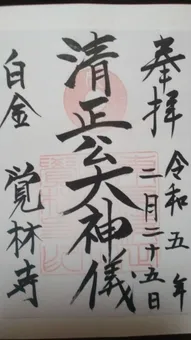 奉拝
令和五年
二月二十五日
清正公大神儀
白金
覚林寺